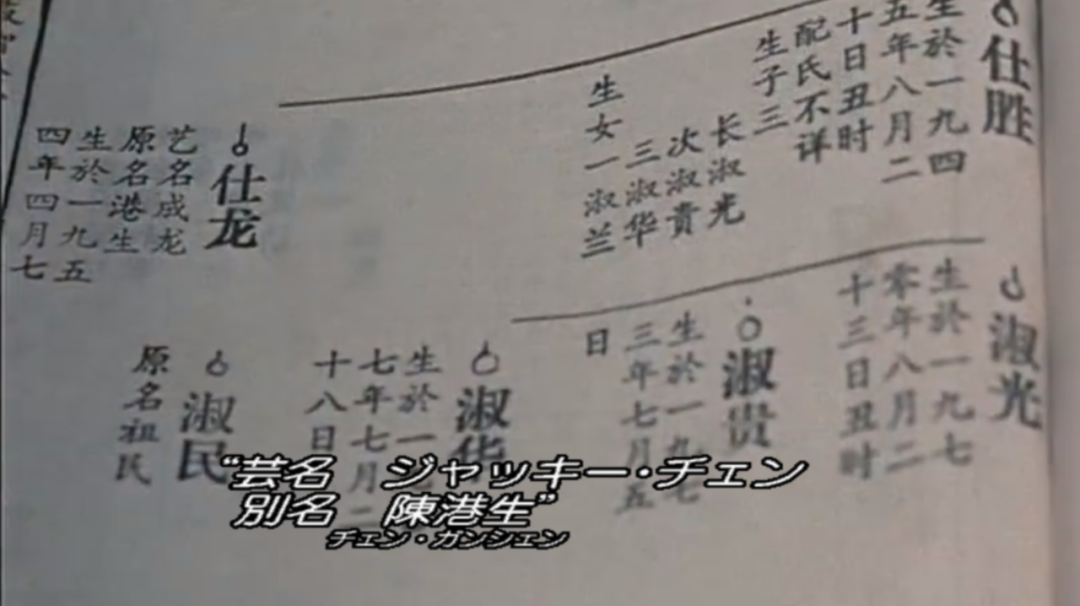 仕胜
生於一九四
五年八月二
十日丑时
配氏不详
生子三
长淑光
次淑贵
三淑华
生女一淑兰
仕龙
艺名成龙
原名港生
生於一九五
四年四月七
淑光
生於一九七
零年八月二
十三日丑时
淑贵
生於一九七
三年七月五
日
淑华
生於一
七年七月二
十八日
淑民
原名祖民
“芸名　ジャッキー・チェン
別名　陳港生”
チェン・ガンシェン